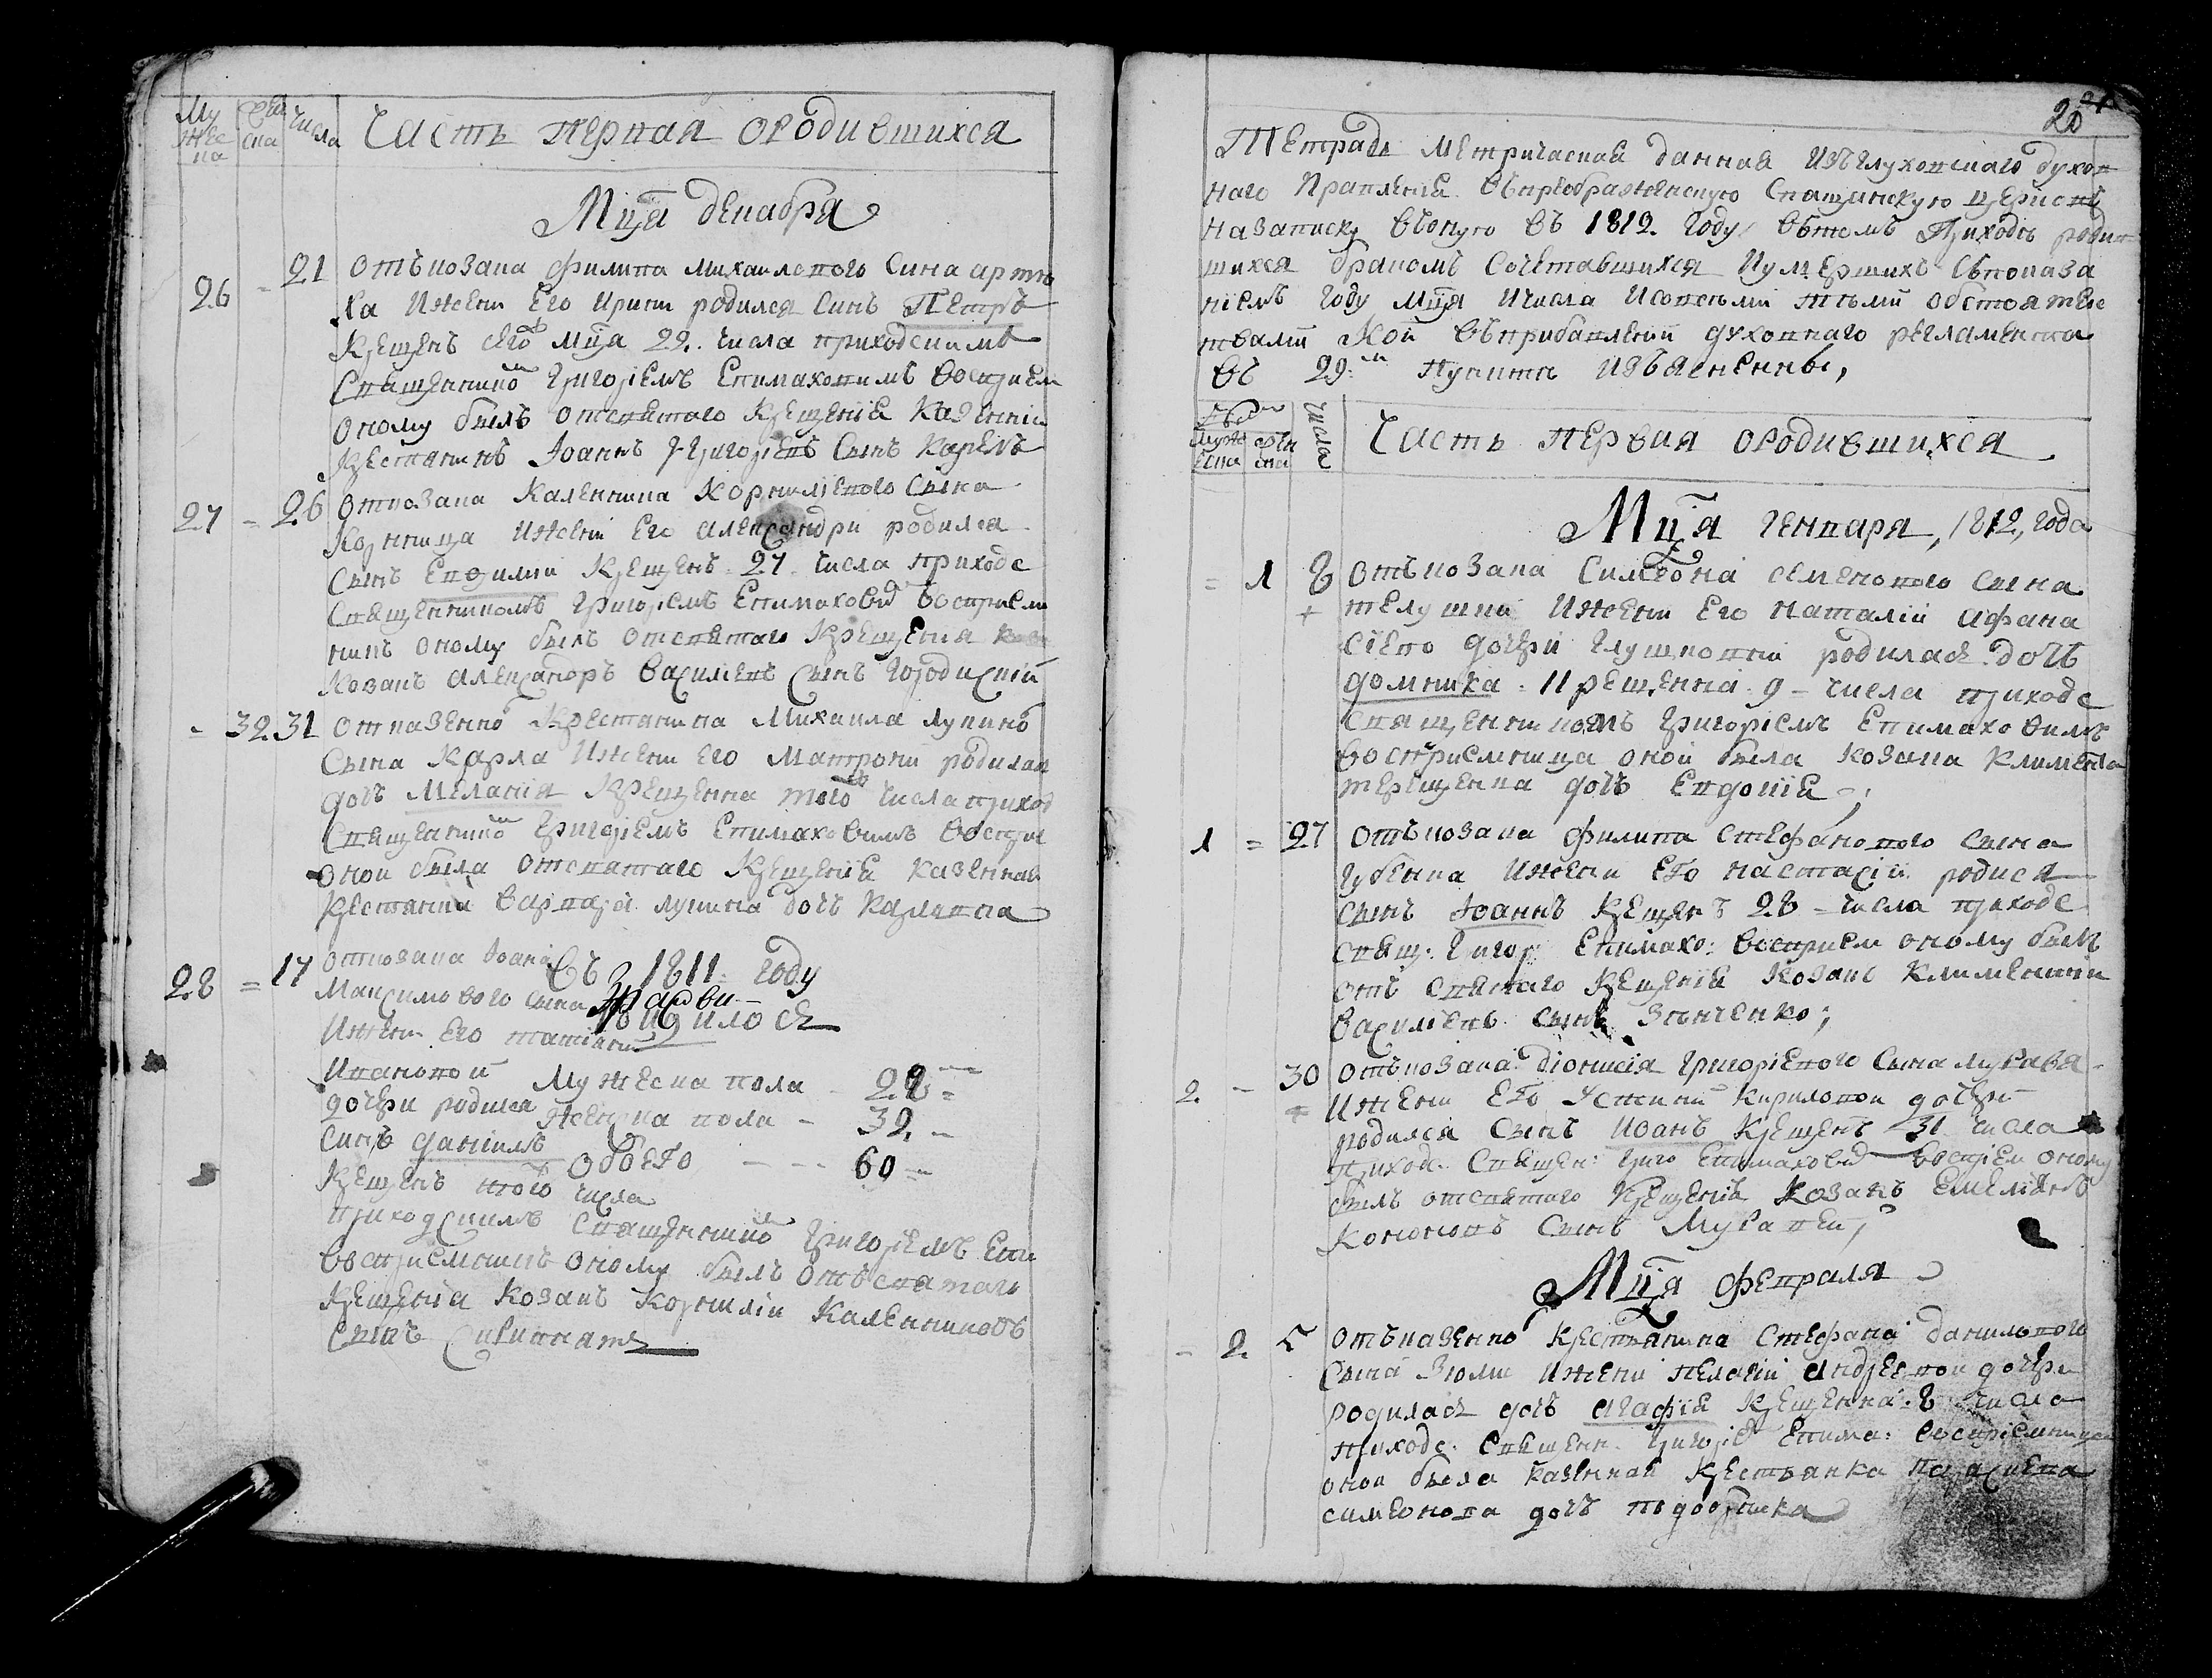 Му
жес
ка
жен
ска
числа
Часть первая ородившихся
Мцⷭ҇а декабря
26 = 21 Отъкозака филипа михаилового Сина арте
ха Ижени Его Ирини родился Синъ Петръ
Крещенъ сего мцⷭ҇а 22. числа приходскимъ
Священнико Григоріемъ Епимаховимъ Восприем
оному былъ отсвятаго Крещенія Казенній
Крестянинъ Іоаннъ Григоріевъ Сынъ Карелъ
27 = 26 Откозака Каленника Корниліевого Сына
Корница Ижени Его Александри родился
Сынъ Евдгимий Крещенъ 27. числа приходс
Священникомъ Григоріемъ Епимахови Восприем
никъ оному былъ отсвятаго Крещения
Козакъ Александръ Василиевъ Сынъ Городиский
= 32. 31 Отказенно Крестянина Михаила Лукино
Сына Карла Ижени его Матрони родилася
дочь Меланія Крещенна того числа приход
Священнико Григоріемъ Епимаховимъ Воспри
оной была отсвятаго Крещенія Казенная
Крестянка Варвара Лукина дочь Карловна
28 = 17 откозака Іоана
Максимового сына
Ижени Его татіани
Ивановой
дочери родился
Синъ Даніилъ
Крещенъ того числа
приходскимъ Священнико Григоріемъ Епи
Восприемникъ оному былъ отъсвятаго
Крещенія Козакъ Корнилій Каленниковъ
Сынъ
Въ 1811. году
родилося
Мужеска пола - 28 =
Женска пола - 32. -
Обоего - - - 60 =
20
Тетрадь Метрическая данная Изъглуховскаго духов
наго Правленія Въпреображенскую Спащинскую церковь
Назаписку Вьоную Въ 1812. году Втомъ Приходе родив
шихся бракомъ Сочетавшихся Иумершихъ Съпоказа
ніемъ году мцⷭ҇я Ичисла Исовсеми теми обстоятелс
твами Кои Въприбавлении духовнаго регламента
Въ 29.м Пункте Изъясненны,
Муж
еска
жен
ска
числа
Часть Первая ородившихся
Мцⷭ҇я Генваря, 1812, года
= 1 8 Отъкозака Симеона Семенового Сына
телушки Ижени Его Наталіи Афана
сіево дочери Глушковни родилась дочь
домника. Крещенна 9 - числа приходс
Священникомъ Григоріемъ Епимаховимъ
Восприемница оной была Козака Климента
терещенка дочь Евдокия;
1 = 27 Отъкозака филипа Стефанового Сына
Губенка Ижени Его Настасіи родися
Сынъ Іоаннъ Крещенъ 28 - числа приходс
Свящ: Григор Епимахо: Восприем оному былъ
отъ Святаго Крещенія Козакъ Климентій
Василіевъ Сынъ Зѣнченко;
2. - 30 Отъкозака Діонисія Григоріевого Сына муравя
Ижени Его Устинии Кириловой дочери
родился Сынъ Иоанъ Крещенъ 31 числа
приход. Священ: Григо Епимахови Восприем оному
былъ отсвятаго Крещенія Козакъ Емеліянъ
Кононовъ Сынъ Муравей;
Мцⷭ҇я февраля
- 2. 5 Отъказенно Крестянина Стефана Данилового
Сына Зюми Ижени Пелагіи Андреевой дочери
родилась дочь Агафія Крещенна: 8 числа
приходс. Священ. Григоріе Епима: Восприемница
оной была Казенная Крестьянка Параскева
симеонова дочь